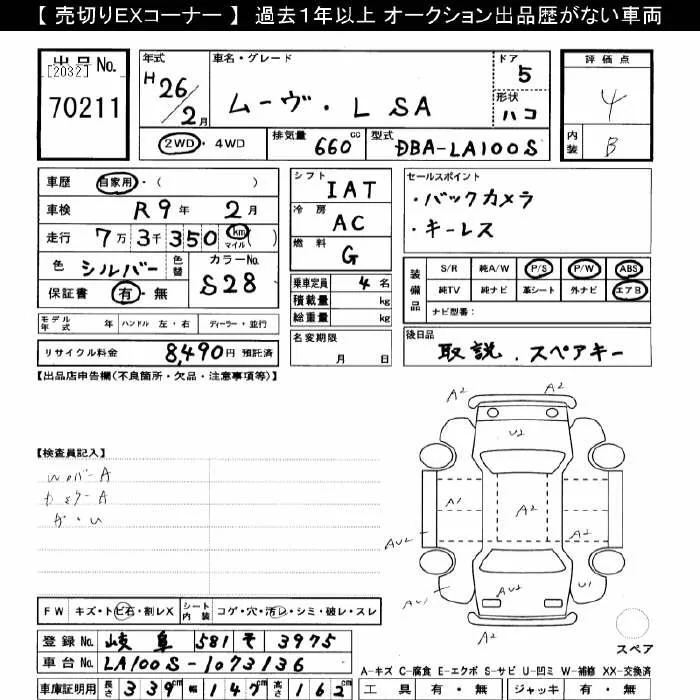 【 売切りEXコーナー 】 過去1年以上 オークション出品歴がない車両
出品No.
[2032]
70211
年式 H 26/2月
車名・グレード
ムーヴ・L SA
ドア 5
形状 ハコ
評価点 4
内装 B
2WD・4WD
排気量 660 cc
型式 DBA-LA100S
車歴 自家用・( )
車検 R9年 2月
走行 7万 3千 350 km マイル ( )
色 シルバー 色替
カラーNo. S28
保証書 有・無
モデル年式 年 ハンドル 左・右 ディーラー・並行
リサイクル料金 8,490円 預託済
シフト IAT
冷房 AC
燃料 G
乗車定員 4名
積載量 kg
総重量 kg
名変期限 月 日
セールスポイント
・バックカメラ
・キーレス
装備品
S/R 純A/W P/S P/W ABS
純TV 純ナビ 革シート 外ナビ エアB
ナビ型番：
後日品
取説．スペアキー
【出品店申告欄(不良箇所・欠品・注意事項等)】
【検査員記入】
A2
A2
U2
A1
A2
A2
AU2
AU1
AU2
U1
A2
スペア
FW キズ・トビ石・割レX
シート内装 コゲ・穴・汚レ・シミ・破レ・スレ
登録No. 岐阜 581 そ 3975
車台No. LA100S-1073136
車庫証明用 長さ 339cm 幅 147cm 高さ 162cm
A-キズ C-腐食 E-エクボ S-サビ U-凹ミ W-補修 XX-交換済
工具 有・無 ジャッキ 有・無